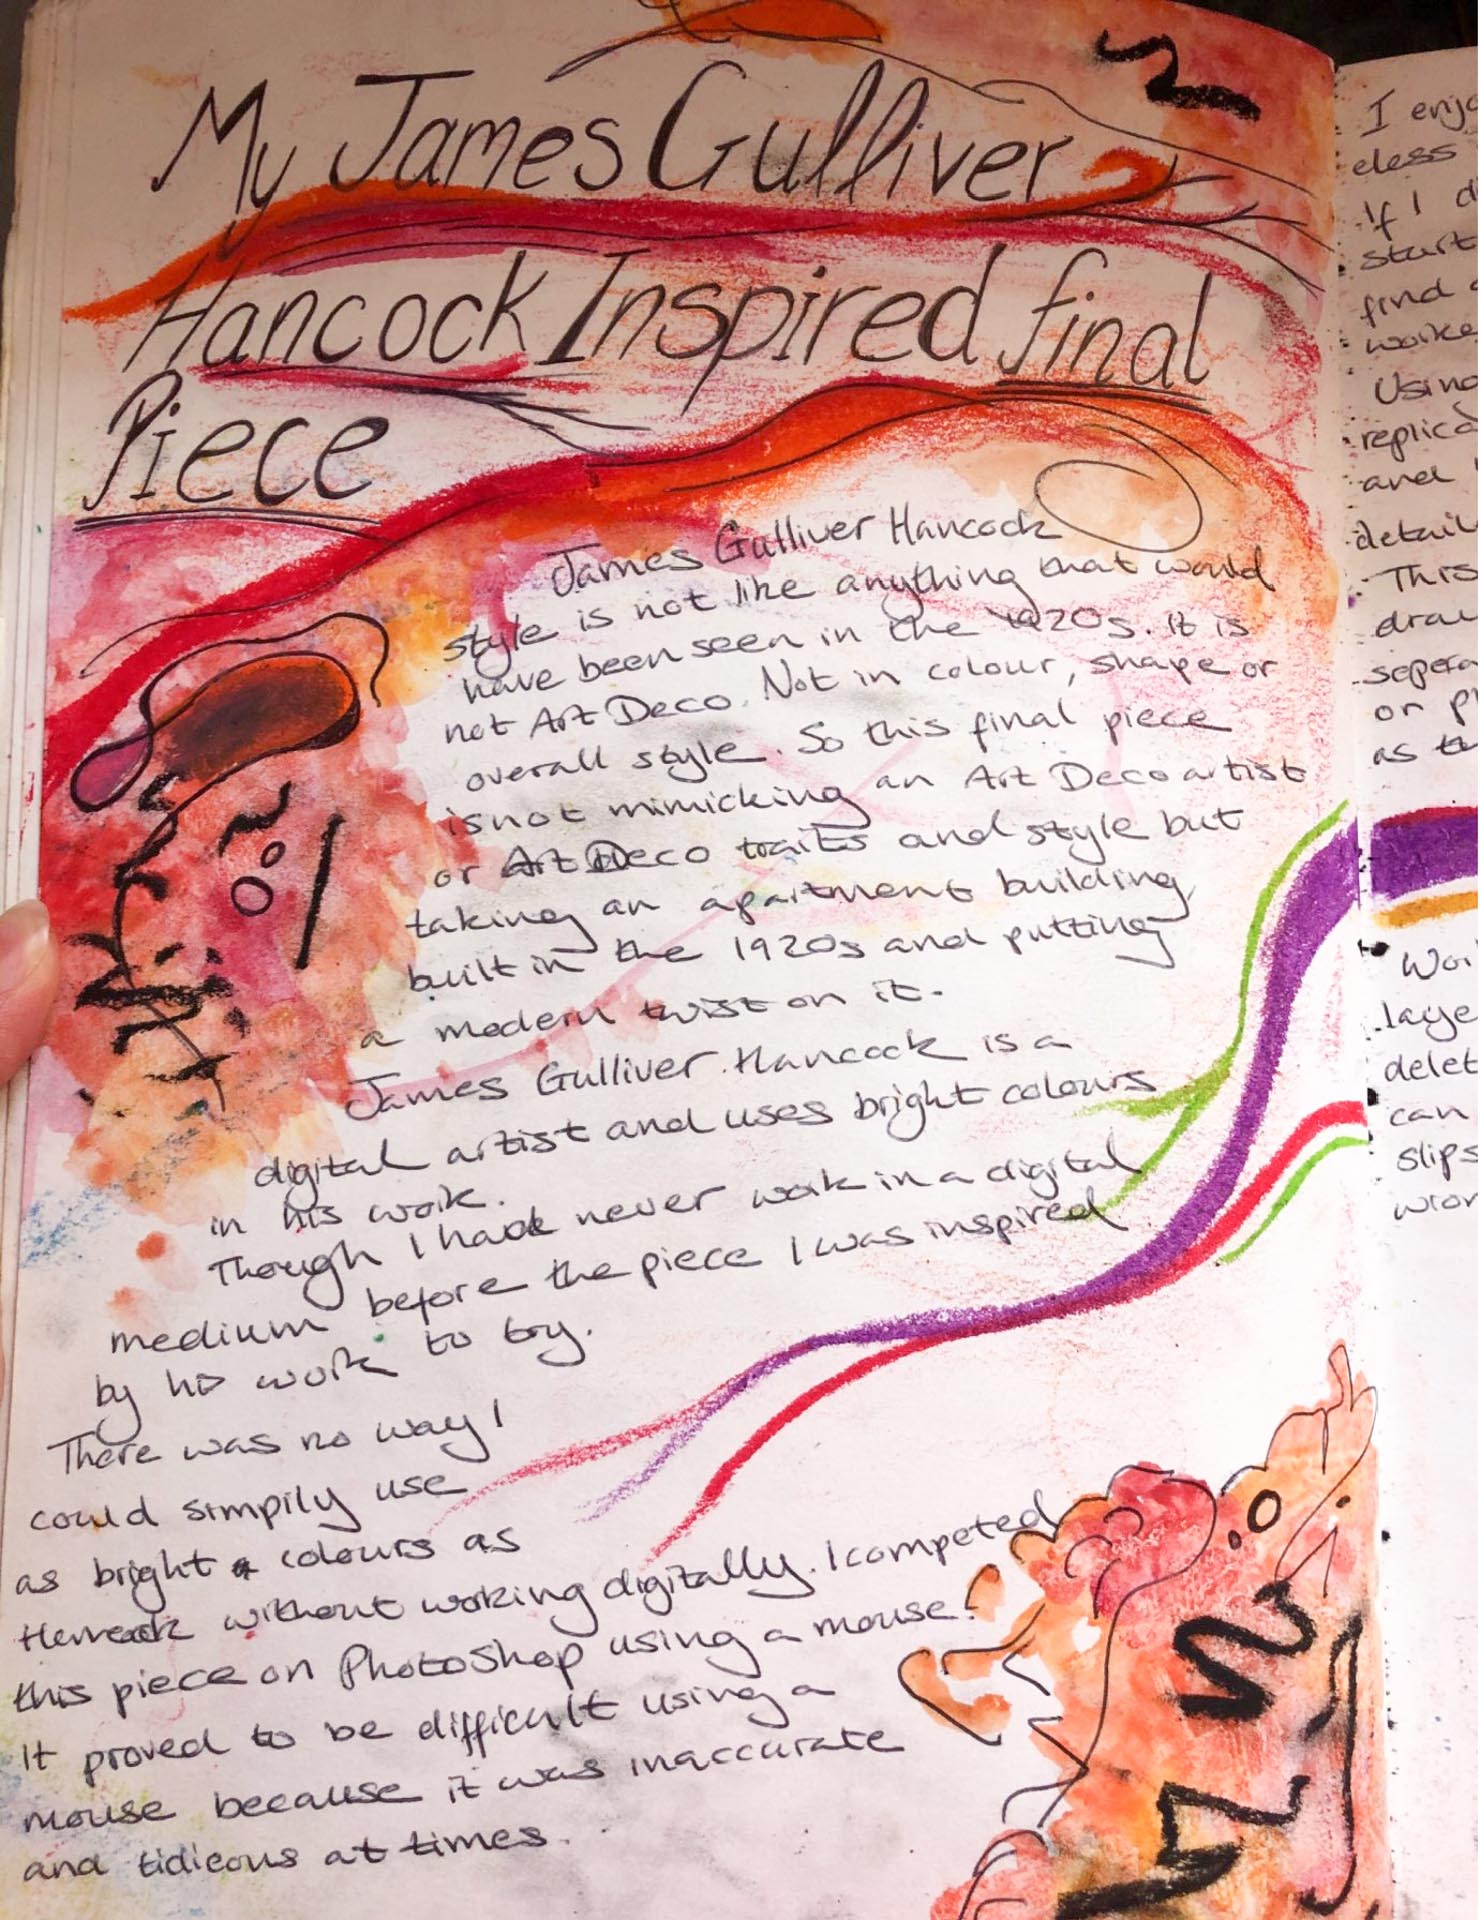 My James Gulliver
Hancock Inspired final
Piece
James Gulliver Hancock
style is not like anything that would
have been seen in the 1920s. it is
not Art Deco. Not in colour, shape or
overall style. So this final piece
is not mimicking an Art Deco artist
or Art Deco traits and style but
taking an apartment building,
built in the 1920s and putting
a modern twist on it.
James Gulliver Hancock is a
digital artist and uses bright colours
in his work.
Though I had never work in a digital
medium before the piece I was inspired
by his work to try.
There was no way I
could simpily use
as bright colours as
without working digitally. I competed
this piece on PhotoShop using a mouse.
It proved to be difficult using a
mouse because it was inaccurate
and tidieous at times.
I enjo
eless
If I d
start
find
worke
Using
replica
and
detail
This
draw
sepera
or pl
as th
Wor
laye
delet
can
slips
wror